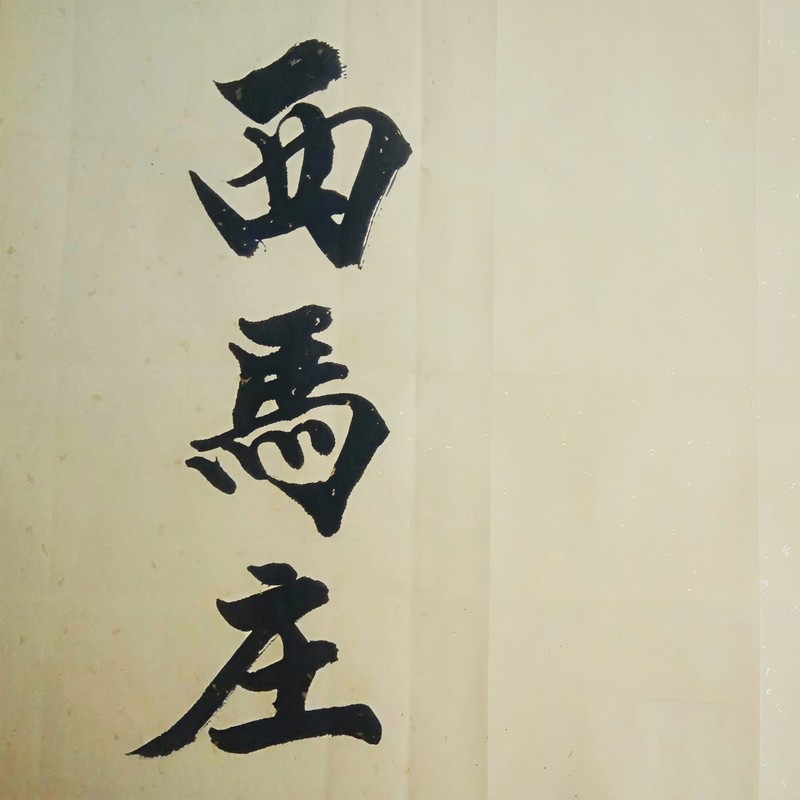 西馬庄